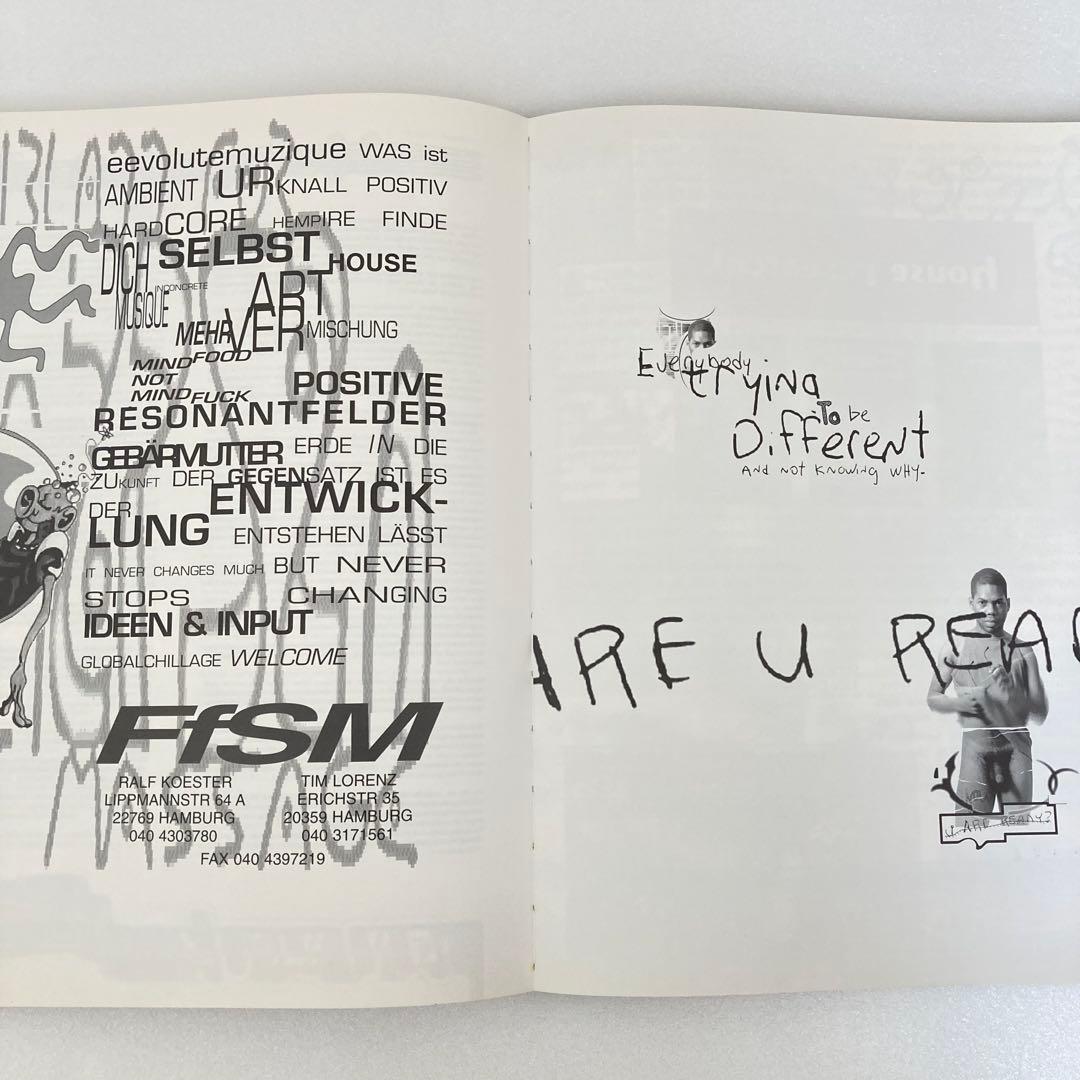 eevolutemuzique WAS ist
AMBIENT URKNALL POSITIV
HARDCORE HEMPIRE FINDE
DICH SELBST HOUSE
MUSIQUE INCONCRETE ART
MEHR VERMISCHUNG
MINDFOOD
NOT
MINDFUCK POSITIVE
RESONANTFELDER
GEBÄRMUTTER ERDE IN DIE
ZUKUNFT DER GEGENSATZ IST ES
DER ENTWICK-
LUNG ENTSTEHEN LÄSST
IT NEVER CHANGES MUCH BUT NEVER
STOPS CHANGING
IDEEN & INPUT
GLOBALCHILLAGE WELCOME
FfSM
RALF KOESTER
LIPPMANNSTR 64 A
22769 HAMBURG
040 4303780
TIM LORENZ
ERICHSTR 35
20359 HAMBURG
040 3171561
FAX 040 4397219
MASSAGE
Everybody
trying
To be
Different
AND NOT KNOWING WHY-
ARE U REA
U ARE READY?
house